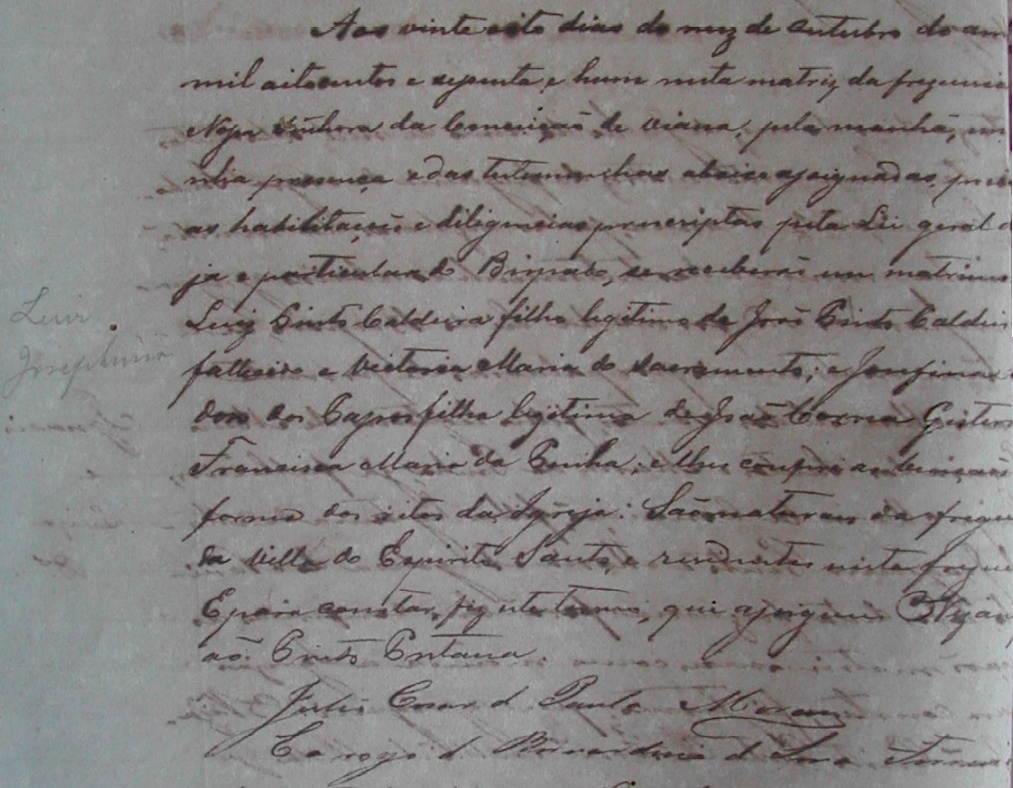 Aos vinte oito dias do mez de outubro do an
mil oitocentos e setenta e hum nesta matriz da freguesia
Nossa Senhora da Conceição de Viana, pela manhã, em mi
nha presença e das testemunhas abaixo assignadas, prece
as habilitações e diligencias prescriptas pela Lei geral
ja e particular do Bispado, se receberão em matrimo
Luiz Pinto Caldeira filho legitimo de João Pinto Caldei
fallecido e Victoria Maria do Sacramento; e Josefina
dos Passos filha legitima de João Correa
Francisca Maria da Penha; e lhes
forma dos ritos da Igreja. São naturaes da fregue
da Villa do Espirito Santo, e residentes nesta fregue
E para constar, fiz este termo, que assigno. O Vigar
Pinto Pestana.
Julio Cesar de Paula
A rogo de Bernardino de
Luiz
Josephina